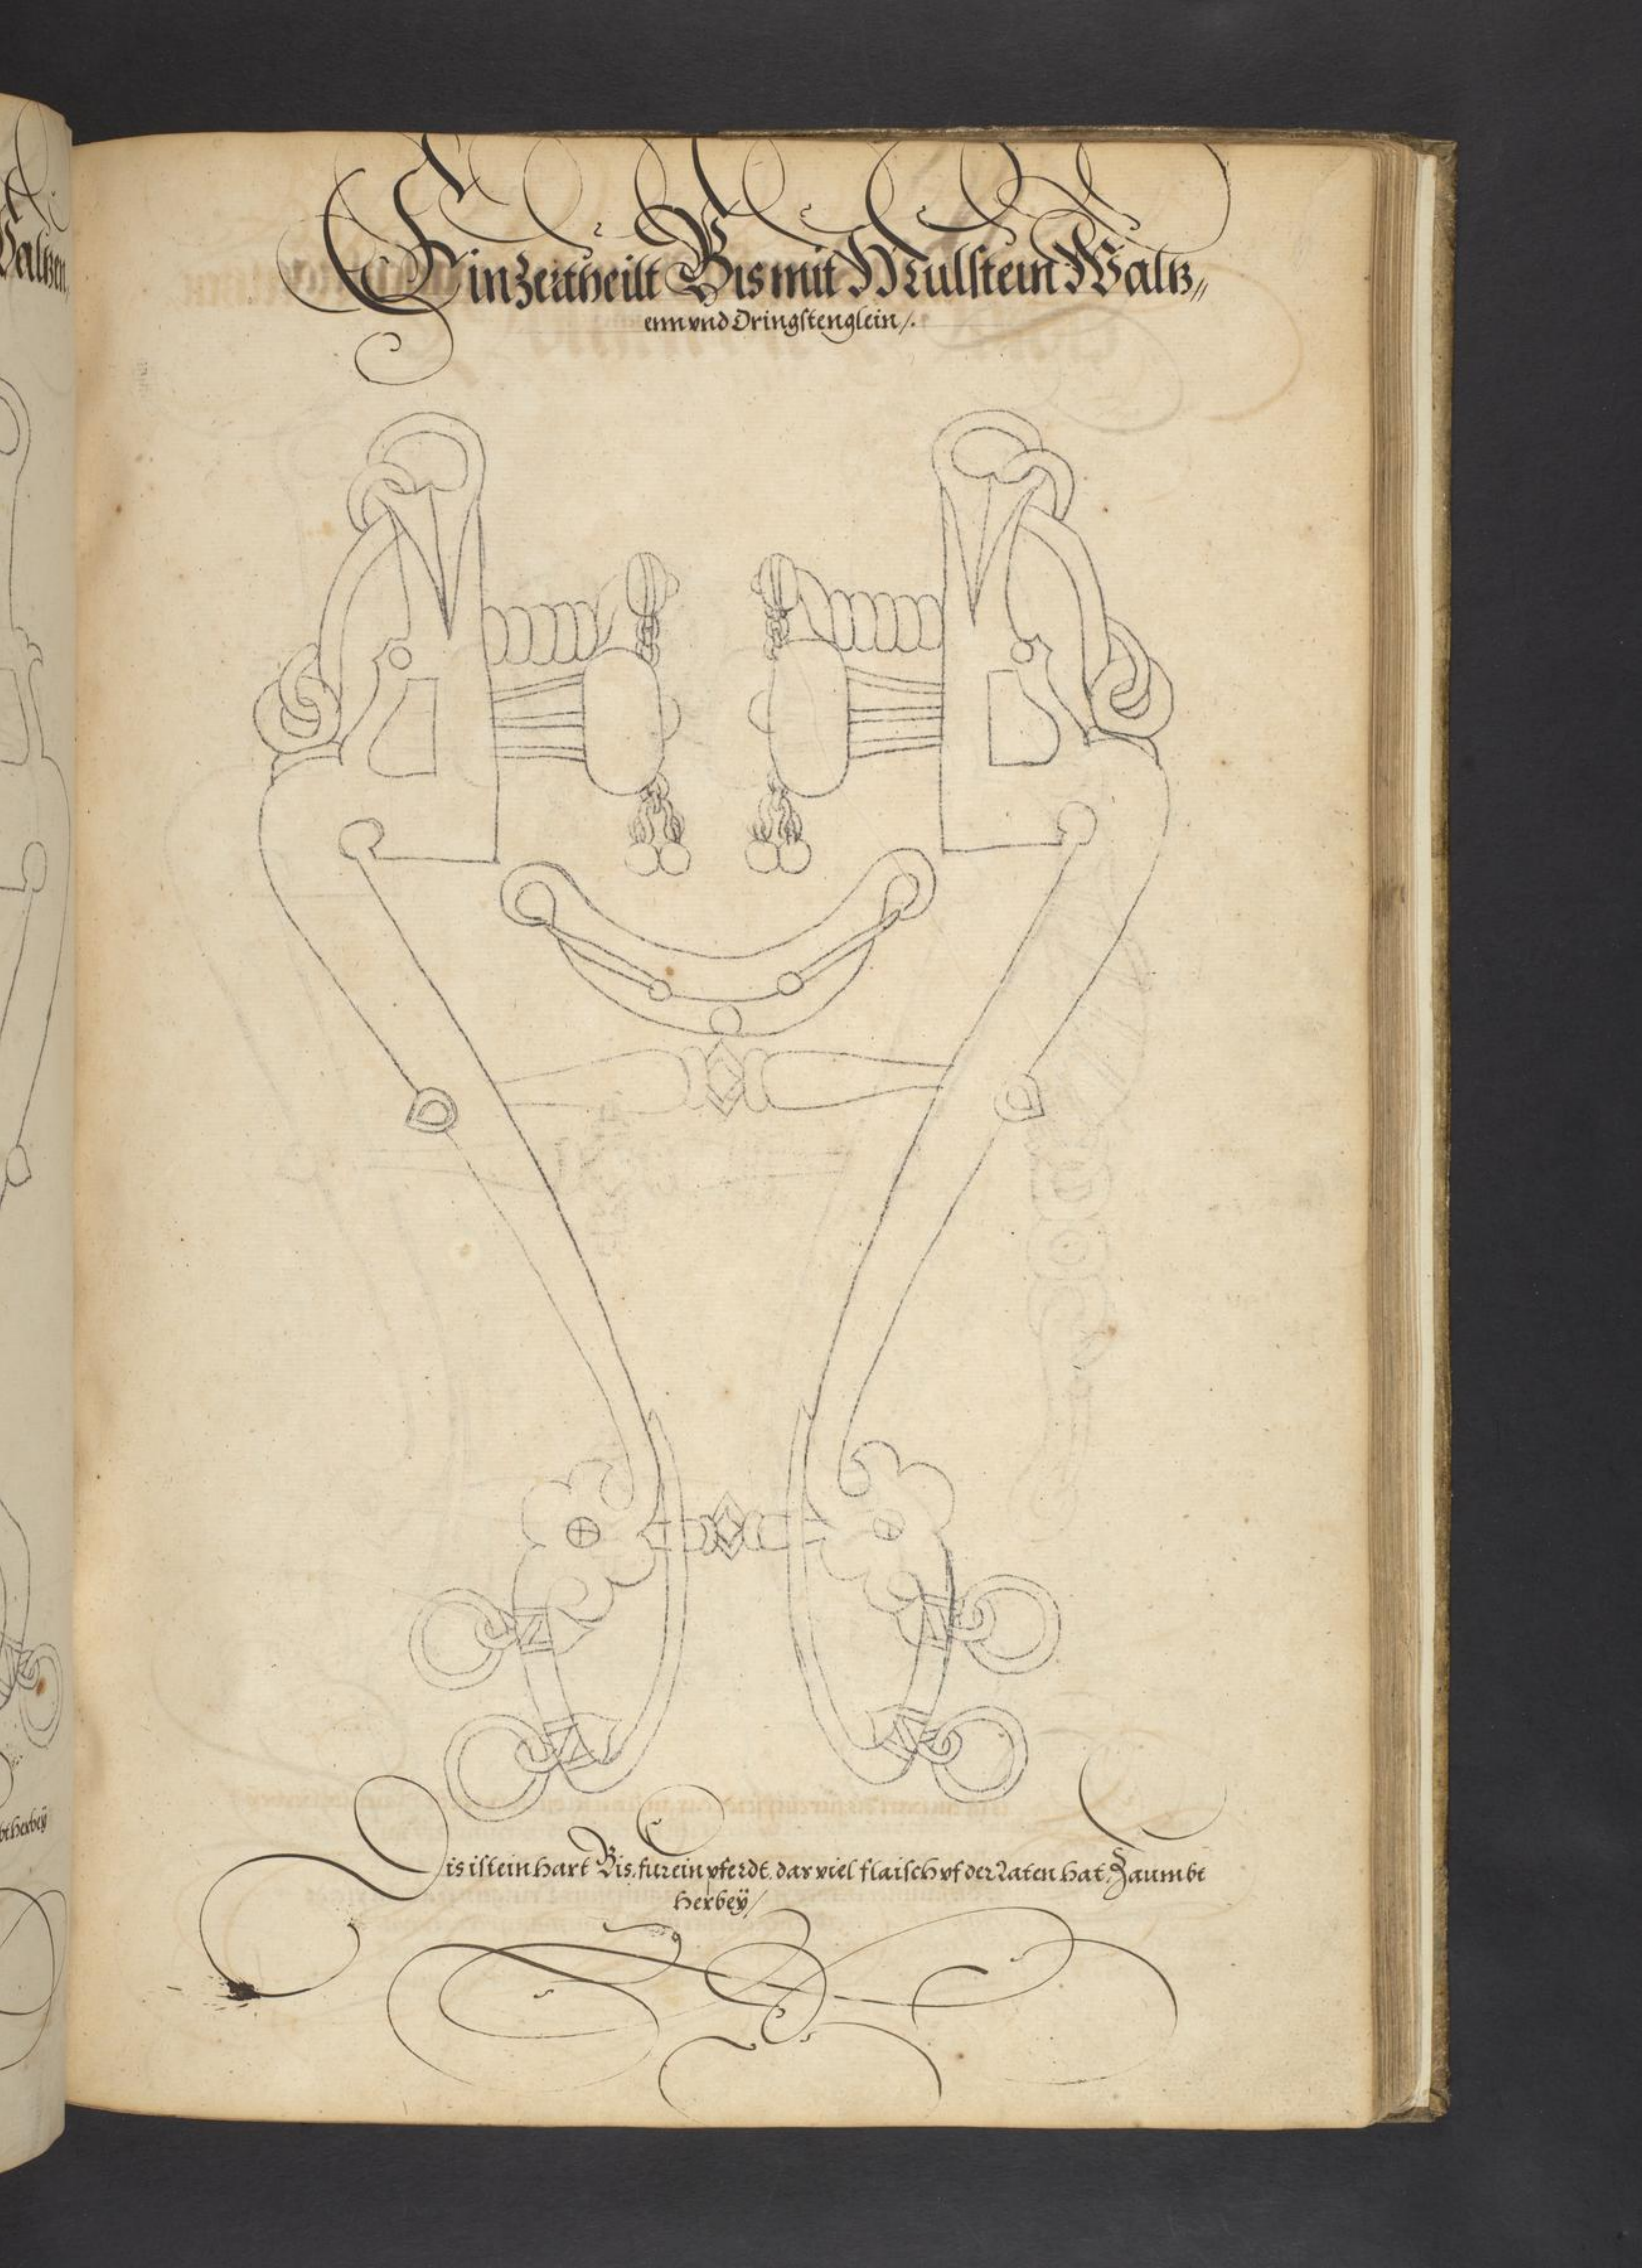 Ein Zertheilt Bis mit Mulstein Waltz„
enn vnd Dringstenglein /.
Dis ist ein hart Bis. fur ein pferdt. das viel flaisch vf der Laten hat, Zaumbt
herbeÿ /